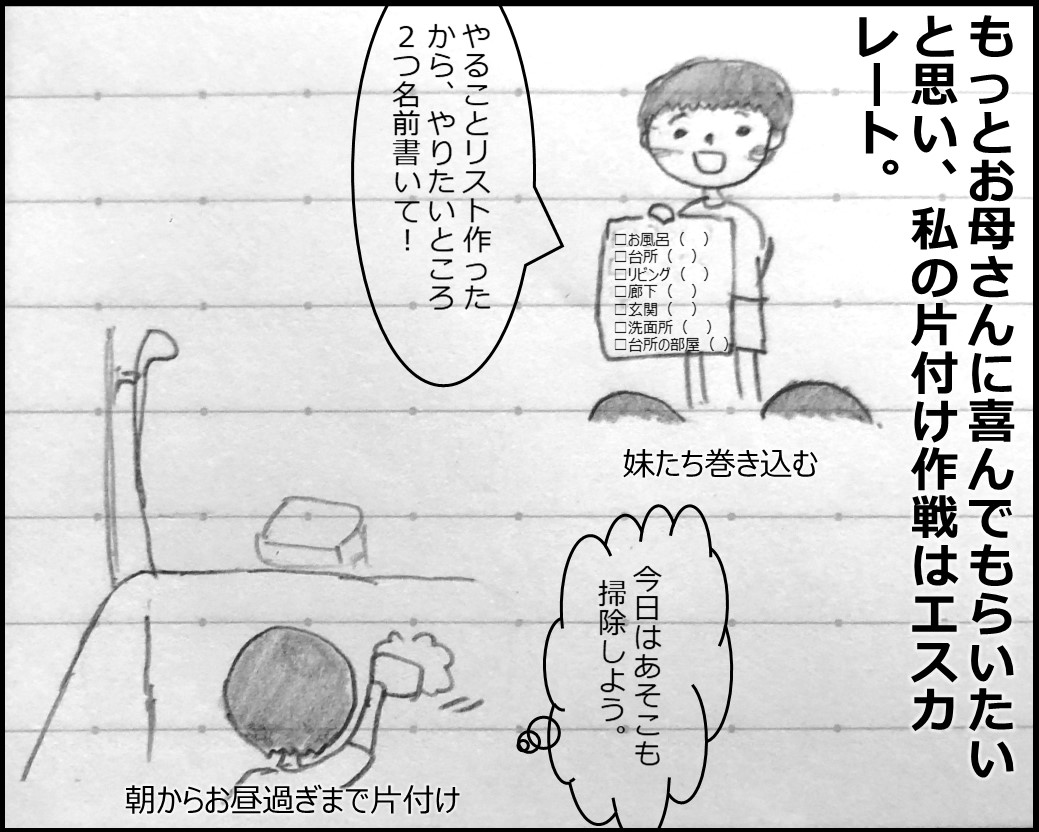 もっとお母さんに喜んでもらいたい
と思い、私の片付け作戦はエスカ
レート。
やることリスト作った
から、やりたいところ
２つ名前書いて！
□お風呂（　）
□台所（　）
□リビング（　）
□廊下（　）
□玄関（　）
□洗面所（　）
□台所の部屋（　）
妹たち巻き込む
今日はあそこも
掃除しよう。
朝からお昼過ぎまで片付け